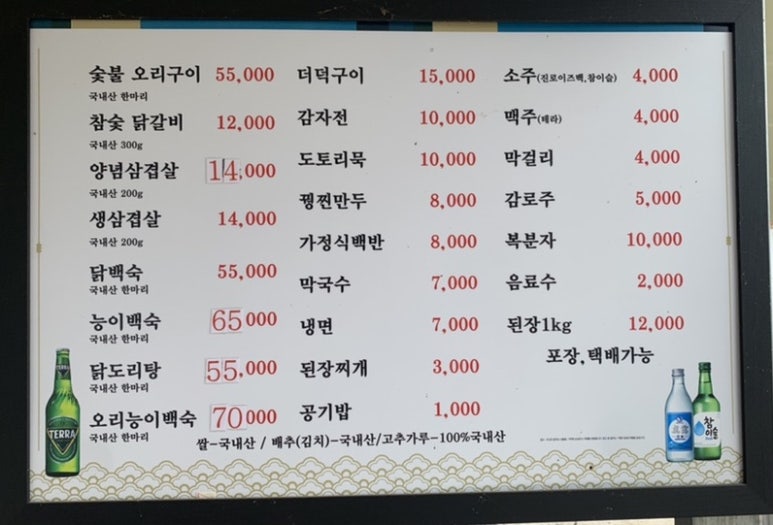 숯불 오리구이 55,000
국내산 한마리
참숯 닭갈비 12,000
국내산 300g
양념삼겹살 14,000
국내산 200g
생삼겹살 14,000
국내산 200g
닭백숙 55,000
국내산 한마리
능이백숙 65000
국내산 한마리
닭도리탕 55,000
국내산 한마리
오리능이백숙 70000
국내산 한마리
더덕구이 15,000
감자전 10,000
도토리묵 10,000
꿩찐만두 8,000
가정식백반 8,000
막국수 7,000
냉면 7,000
된장찌개 3,000
공기밥 1,000
소주(진로이즈백,참이슬) 4,000
맥주(테라) 4,000
막걸리 4,000
감로주 5,000
복분자 10,000
음료수 2,000
된장1kg 12,000
포장,택배가능
쌀-국내산 / 배추(김치)-국내산/고추가루-100%국내산
TERRA
TERRA
참이슬